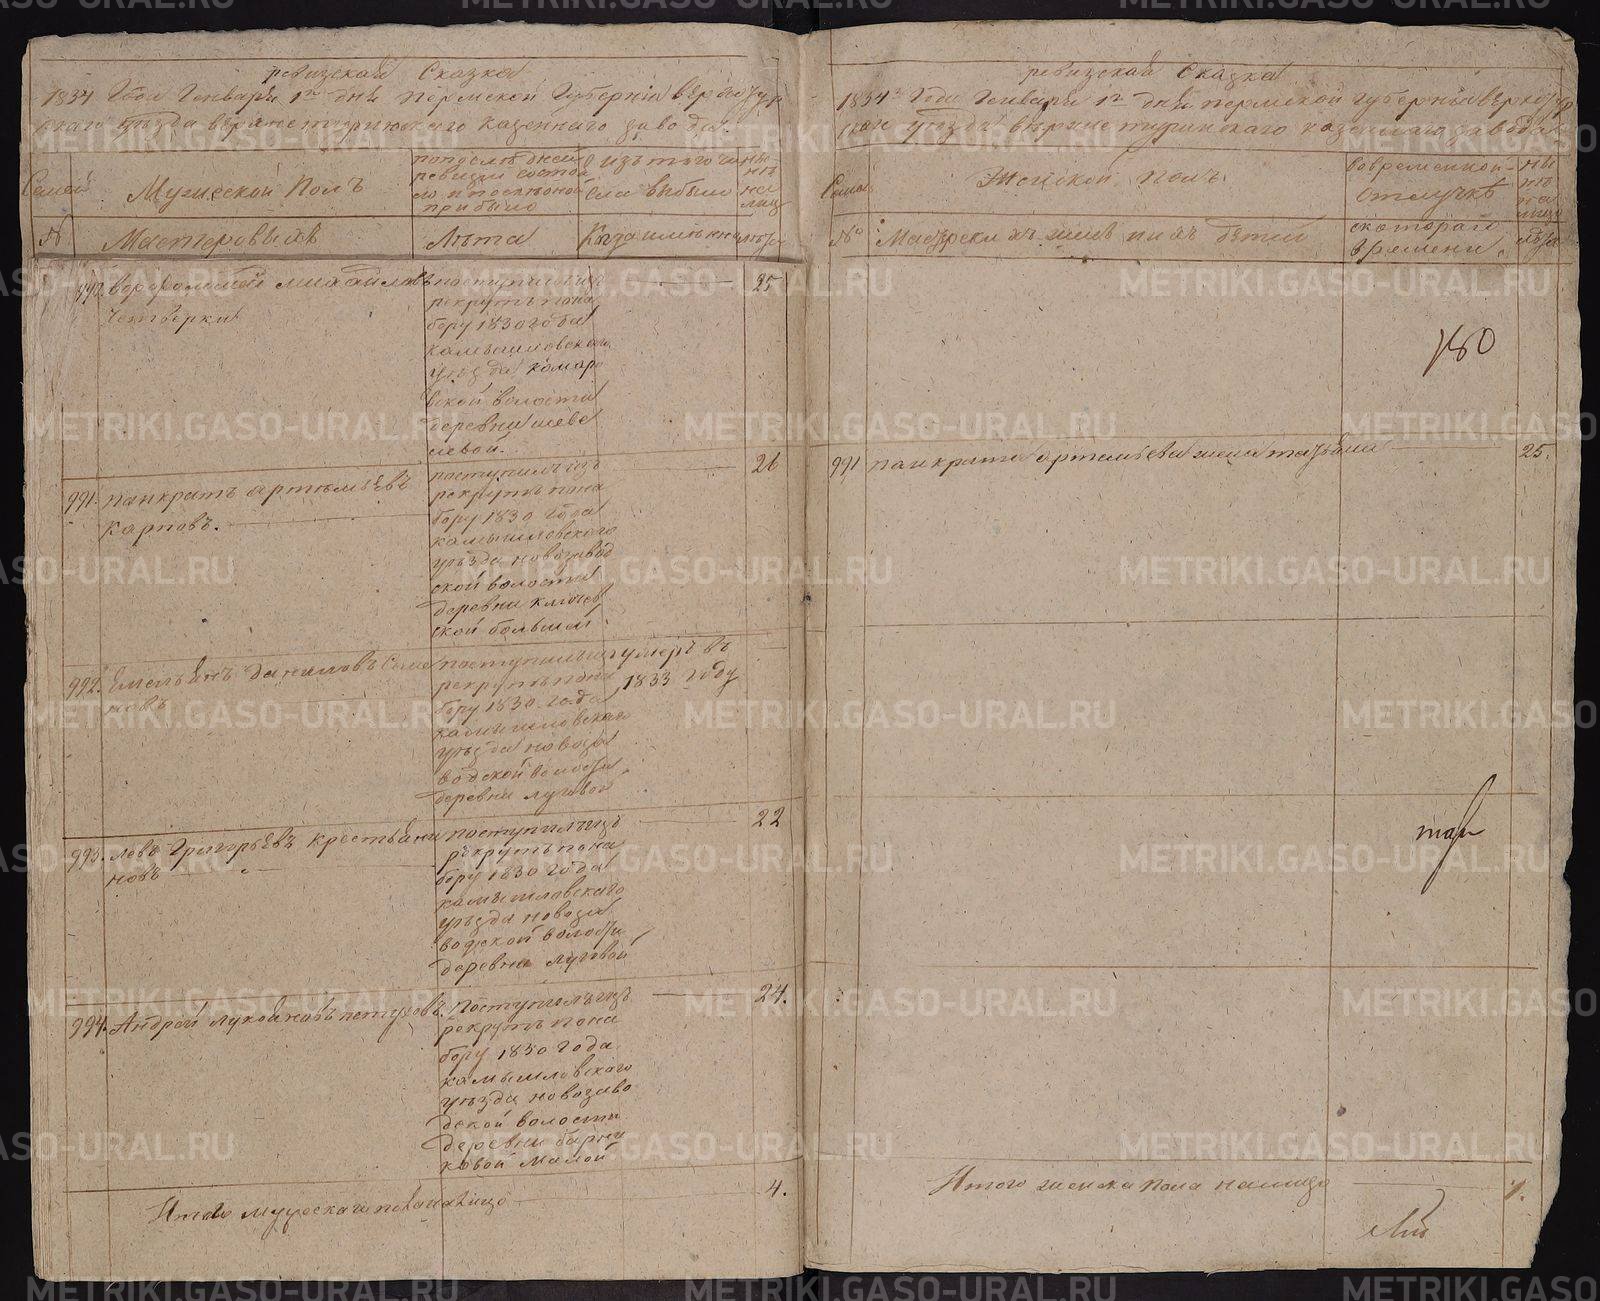 ревизская Сказка
1834 Года Генваря 1го дня пермской Губернии верхотур
скаго уезда верхнетуринскаго казеннаго завода.
Семей
Мужеской Полъ
по последней
ревизии состоя
ло и после оной
прибыло
изъ того чи
сла выбыло
ны
не
на
лицо
№
Мастеровыхъ
Лѣта
Когда именно
лѣта
990. Михайловъ
Четверкинъ
поступилъ изъ
рекрутъ по на
бору 1830 года
камышловскаго
уѣзда комаро
вской волости
деревни шеве
левой.
25
991. панкратъ артемьевъ
Карповъ.
поступилъ изъ
рекрутъ по на
бору 1830 года
камышловскаго
уѣзда новозавод
ской волости
деревни ключев
ской большой.
26
992. Емельянъ Даниловъ Семе
новъ
поступилъ изъ
рекрутъ по на
бору 1830 года
камышловскаго
уѣзда новоза
водской волости
деревни луговой
умеръ въ
1833 году
993. Левъ Григорьевъ крестьяни
новъ
поступилъ изъ
рекрутъ по на
бору 1830 года
камышловскаго
уѣзда новоза
водской волости
деревни луговой
22
994. Андрей лукояновъ петуховъ.
поступилъ изъ
рекрутъ по на
бору 1830 года
камышловскаго
уѣзда новозаво
дской волости
деревни барни
ковой малой
24.
Итого мужескаго пола на лицо
4.
ревизская Сказка
1834го Года Генваря 1го дня пермской губернии верхотур
скаго уезда верхнетуринскаго казеннаго завода
Семей
Женской полъ.
во временной
отлучке
ны
не
на
лицо
№
Мастерскихъ женъ и ихъ детей
с котораго
времени.
лѣта
180
991 панкрата артемьева жена татьяна
25.
Итого женска пола на лицо
1.
METRIKI.GASO-URAL.RU